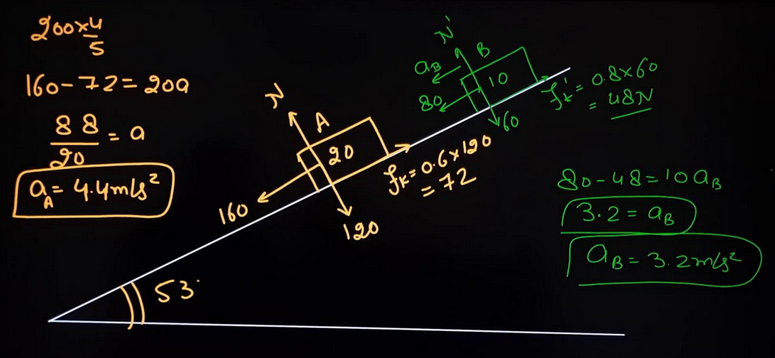 200×4/5
160-72=20a
88/20 = a
a_A = 4.4m/s²
N
A
20
160
120
f_k = 0.6×120
= 72
53°
N'
B
a_B
10
80
60
f_k' = 0.8×60
= 48N
80-48=10a_B
3.2 = a_B
a_B = 3.2m/s²